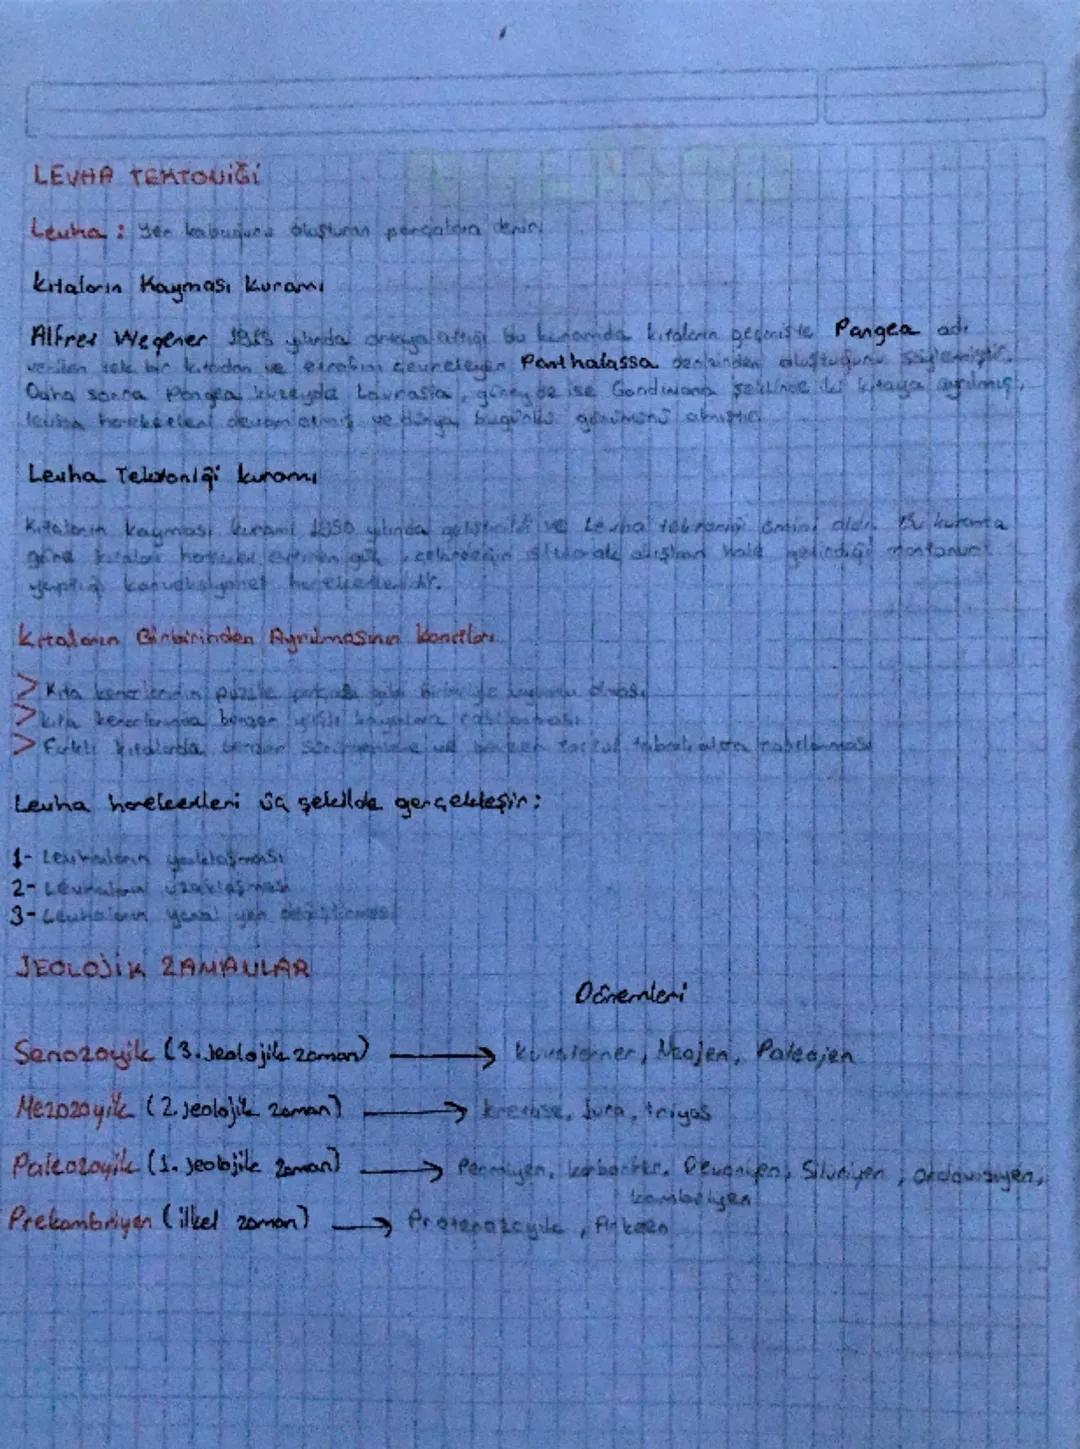 LEVHA TEKTONİĞİ
Levha : Yer kabuğunu oluşturan parçalara denir.
Kıtaların Kayması Kuramı
Alfred Wegener yılında ortaya attığı bu kuramda kıtaların geçmişte Pangea adı
verilen tek bir kıtadan ve etrafını çevreleyen Panthalassa denizinden oluştuğunu söylemiştir.
Daha sonra Pangea kuzeyde Lavrasia, güneyde ise Gondwana şeklinde iki kıtaya ayrılmış,
levha hareketleri devam etmiş ve dünya bugünkü görünümünü almıştır.
Levha Tektoniği kuramı
Kıtaların kayması kuramı 1950 yılında ve Levha tektoniği ismini aldı. Bu kurama
göre kıtaları hareket ettiren güç, çekirdeğin ısıtarak akışkan hale getirdiği mantonun
yaptığı konveksiyonel hareketlerdir.
Kıtaların Birbirinden Ayrılmasının kanıtları
> Kıta kenarlarının puzzle parçası gibi birbiriyle uyumlu olması
> Kıta kenarlarında benzer yaşlı kayalara rastlanması
> Farklı kıtalarda benzer ve benzer rastlanması
Levha hareketleri üç şekilde gerçekleşir:
1- Levhaların yakınlaşması
2- Levhaların uzaklaşması
3- Levhaların yanal yer değiştirmesi
JEOLOJİK ZAMANLAR
Dönemleri
Senozoyik (3. Jeolojik zaman) → Kuvaterner, Neojen, Paleojen
Mezozoyik (2. Jeolojik zaman) → kretase, Jura, triyas
Paleozoyik (1. Jeolojik zaman) → Permiyen, karbonifer, Devoniyen, Siluriyen, ordovisiyen,
kambriyen
Prekambriyen (ilkel zaman) → Proterozoyik, Arkeen